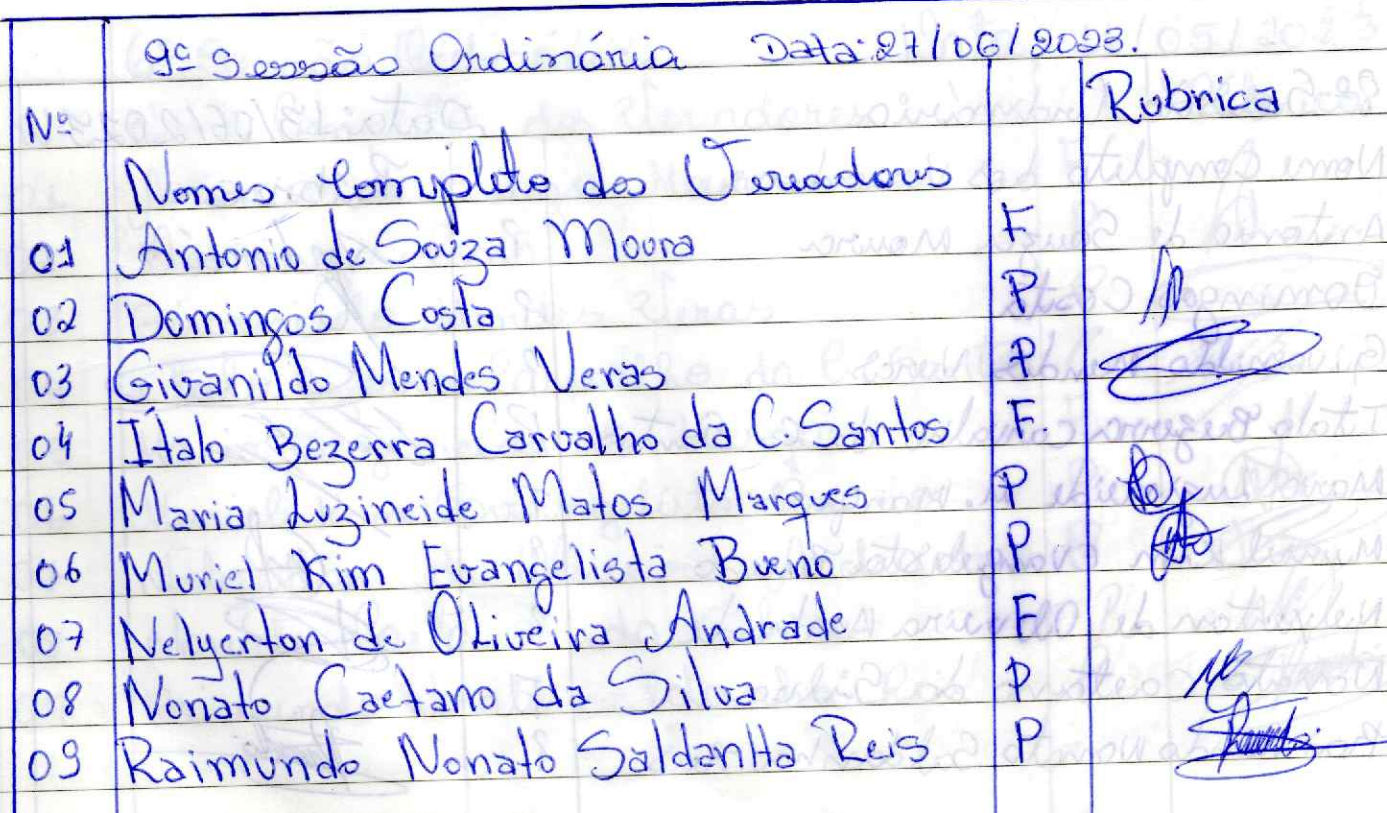 9ª Sessão Ordinária Data: 27/06/2023.
Nº Rubrica
Nomes Completo dos Vereadores
01 Antonio de Souza Moura F
02 Domingos Costa P
03 Givanildo Mendes Veras P
04 Ítalo Bezerra Carvalho da C. Santos F.
05 Maria Luzineide Matos Marques P
06 Muriel Kim Evangelista Bueno P
07 Nelyerton de Oliveira Andrade F
08 Nonato Caetano da Silva P
09 Raimundo Nonato Saldanha Reis P